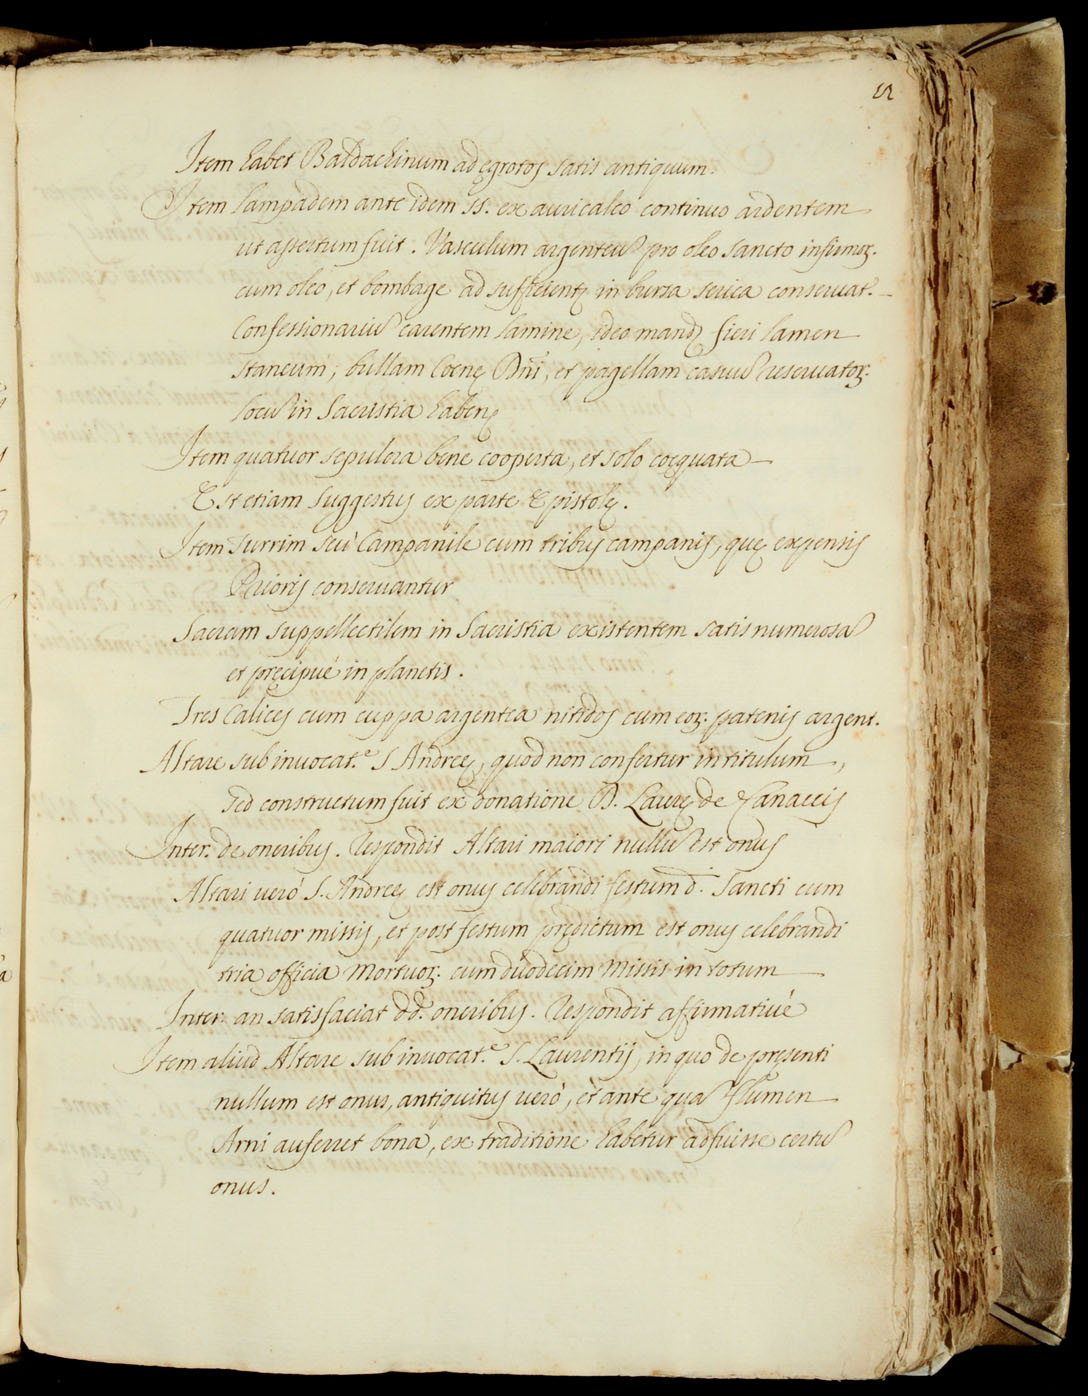 52
Item habet Baldachinum ad ęgrotos satis antiquum.
Item lampadem ante idem SS. ex auricalco continuo ardentem
ut assertum fuit. Vasculum argenteũ pro oleo sancto infirmoꝝ.
cum oleo, et bombage ad sufficientę in bursa serica conservat.
Confessionariũ carentem lamine, ideo mandꝫ fieri lamen
staneum, bullam Coenę Dñi, et pagellam casuũ reservatoꝝ.
locũ in Sacristia habenꝫ
Item quatuor sepulcra bene cooperta, et solo coęquata
Est etiam suggestus ex parte Epistolę.
Item turrim seú Campanile cum tribus campanis, quę expensis
Prioris conservantur
Sacram suppellectilem in Sacristia existentem satis numerosã
et pręcipuè in planetis.
Tres Calices cum cuppa argentea nitidos cum eoꝝ. patenis argent.
Altare sub invocat.ᵉ S Andreę, quod non confertur in titulum,
sed constructum fuit ex donatione D. Laurę de Zanaccis
Inter. de oneribus. Respondit Altari maiori nullũ est onus
Altari verò S. Andreę est onus celebrandi festum d. Sancti cum
quatuor missis, et post festum prędictum est onus celebrandi
tria officia Mortuoꝝ. cum duodecim Missis in totum
Inter. an satisfaciat dd. oneribus. Respondit affirmativè
Item aliud Altare sub invocat.ᵉ S. Laurentij, in quo de pręsenti
nullum est onus, antiquitus verò, et ante quã flumen
Arni auferret bona, ex traditione habetur adfuisse certũ
onus.